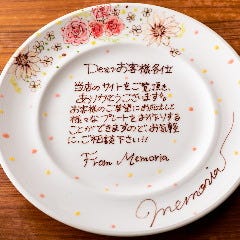 Dearお客様各位
当店のサイトをご覧頂き、
ありがとうございます。
お客様のご要望にお応えした
様々なプレートをお作りする
ことができますのでお気軽
にご相談下さい!!
From Memoria
memoria